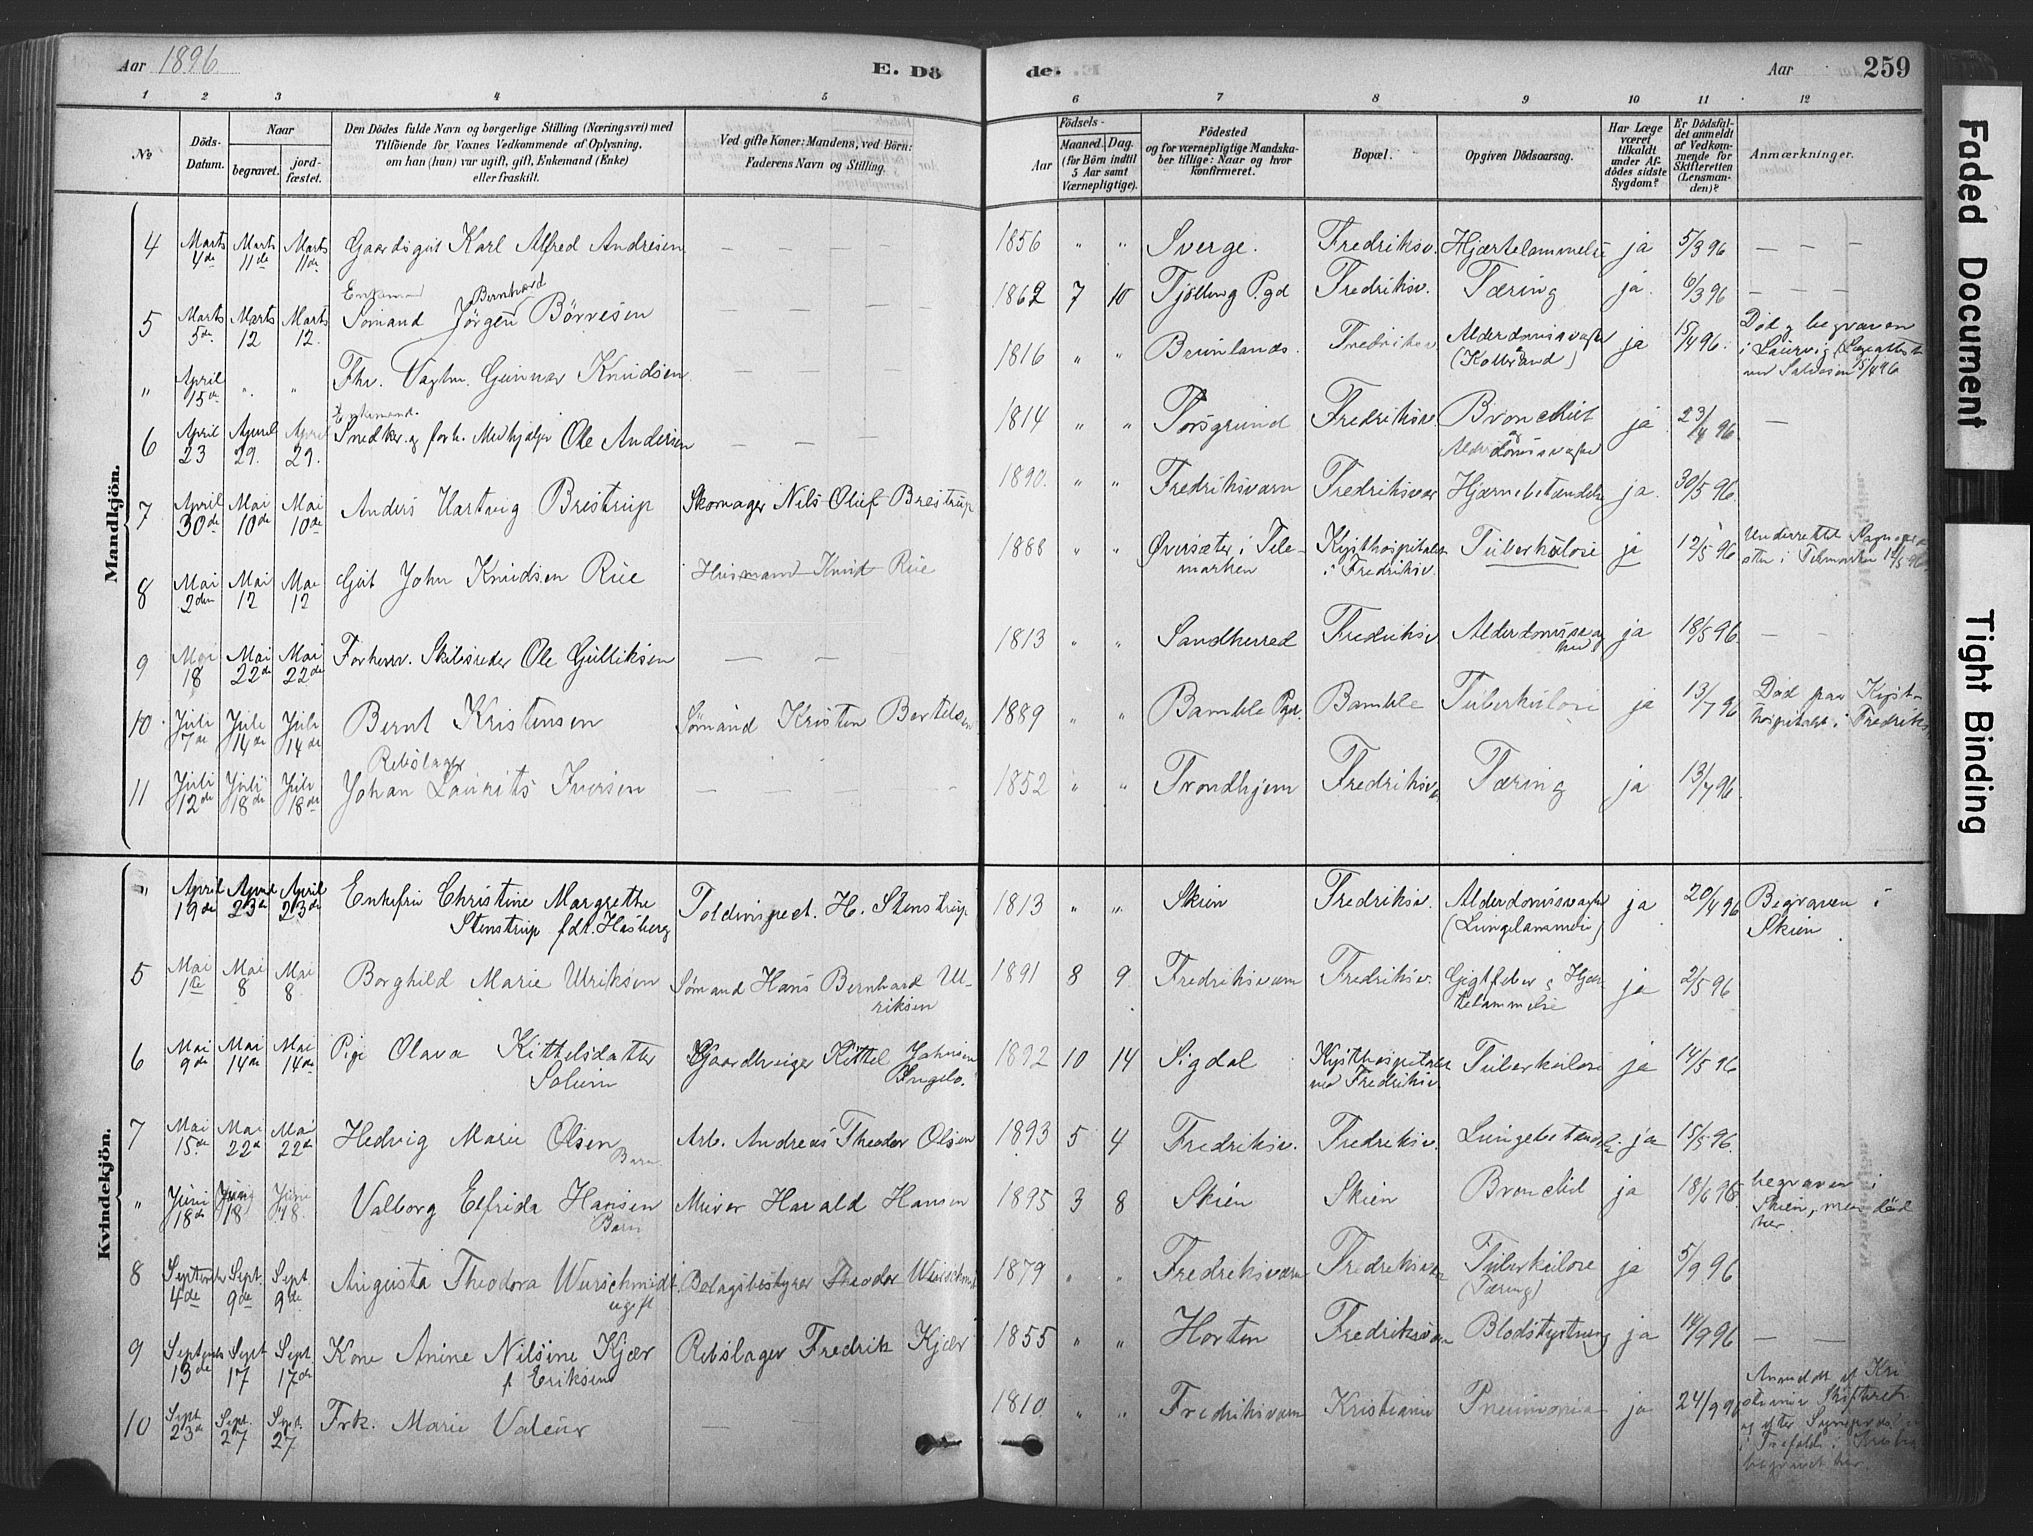 Aar 1896 E. Dö de. Aar 259
1 2 3 4 5 6 7 8 9 10 11 12
No. Döds-Datum. Naar begravet. jordfæstet. Den Dödes fulde Navn og borgerlige Stilling (Næringsvei) med Tilföiende for Voxnes Vedkommende af Oplysning, om han (hun) var ugift, gift, Enkemand (Enke) eller fraskilt. Ved gifte Koner: Mandens, ved Börn: Faderens Navn og Stilling. Födsels- Aar Maaned. Dag. (for Börn indtil 5 Aar samt Værnepligtige). Födested og for værnepligtige Mandskaber tillige: Naar og hvor konfirmeret. Bopæl. Opgiven Dödsaarsag. Har Læge været tilkaldt under Afdödes sidste Sygdom? Er Dödsfaldet anmeldt af Vedkommende for Skifteretten (Lensmanden)? Anmærkninger.
Mandkjön.
4 Marts 4de Marts 11de Marts 11de Gaardsgut Karl Alfred Andresen — — — — 1856 " " Sverge. Fredriksv. Hjærtelammelse ja 5/3 96 — — —
5 Marts 5de Marts 12 Marts 12. Enkemand Sømand Jörgen Bernhard Börresen — — — 1862 7 10 Tjölling P.gd Fredriksv. Tæring ja 6/3 96 — — —
" April 15de " " Fhv. Vagtm. Gunnar Knudsen — — — 1816 " " Brunlands. Fredriksv. Alderdomssvaghed (Koldbrand) ja 15/4 96. Död og begraven i Laurvig
6 April 23 April 29. April 29. Enkemand. Snedker og forh. Medhjælper Ole Andersen — — — 1814 " " Porsgrund Fredriksv. Bronchit og Alderdomssvaghed ja 23/4 96 —
7 April 30de Mai 10de Mai 10de Anders Hartvig Brestrup Skomager Nils Oluf Brestrup 1890. " " Fredriksværn Fredriksvær Hjærnebetændelse ja. 30/5 96.
8 Mai 2den Mai 12 Mai 12 Gut John Knudsen Rue Husmand Knud Rue 1888 " " Øversæter i Telemarken Kysthospitalet i Fredriksv. Tuberkulose ja 12/5 96 Underrettet Sognepresten i Telemarken 12/5 96
9 Mai 18 Mai 22de Mai 22de Forhenv. Skibsreder Ole Gulliksen — — 1813 " " Sandherred Fredriksv Alderdomssvaghed ja 18/5 96. — —
10. Juli 7de Juli 14de Juli 14de Bernt Kristensen Sømand Kristen Bertelsen 1889 " " Bamble Pgd. Bamble Tuberkulose ja 13/7 96 Död paa Kysthospitalet i Fredriksv
11 Juli 12de Juli 18de Juli 18de Rebslager Johan Laurits Iversen — — — — 1852 " " Trondhjem Fredriksv Tæring ja 13/7 96.
Kvindekjön.
" April 19de April 23de April 23de Enkefru Christine Margrethe Stenstrup födt. Hasberg Toldinspect. H. Stenstrup 1813 " " Skien Fredriksv. Alderdomssvaghed (Lungelammelse) ja 20/4 96 Begraven i Skien.
5 Mai 1ste Mai 8 Mai 8 Borghild Marie Ulriksen Sømand Hans Bernhard Ulriksen 1891 8 9 Fredriksværn Fredriksv. Gigtfeber og Hjærtelammelse ja 2/5 96
6 Mai 9de Mai 14de Mai 14de Pige Olava Kittelsdatter Solum Gaardbruger Kittel Johnsen 1892 10 14 Sigdal Kysthospitalet ved Fredriksv. Tuberkulose ja 14/5 96
7 Mai 15de Mai 22de Mai 22de Hedvig Marie Olsen Barn Arb. Andreas Theodor Olsen 1893 5 4 Fredriksv. Fredriksv. Lungebetænd. ja 15/5 96.
" Juni 18de Juni 18 Juni 18. Valborg Elfrida Hansen Barn Murer Harald Hansen 1895 3 8 Skien Skien Bronchit ja 18/6 96 begraven i Skien, men död her.
8 September 4de Sept. 9de Sept. 9de Augusta Theodora Wurschmidt ugift Bolagsbestyrer Theodor Wurschmidt 1879 " " Fredriksværn Fredriksvær Tuberkulose (Tæring) ja 5/9 96
9 September 13de Sept 17 Sept. 17de Kone Anine Nilsine Kjær f. Eriksen Rebslager Fredrik Kjær 1855 " " Horten Fredriksværn Blodstyrtning ja 14/9 96 — —
10 Sept 23de Sept. 27 Sept. 27 Frk. Marie Valeur — 1810 " " Fredriksværn Kristiania Pneumonia ja 24/9 96 Anmeldt af Kristiania Skifteret og efter Sogneprest i begravet her.
Faded Document
Tight Binding